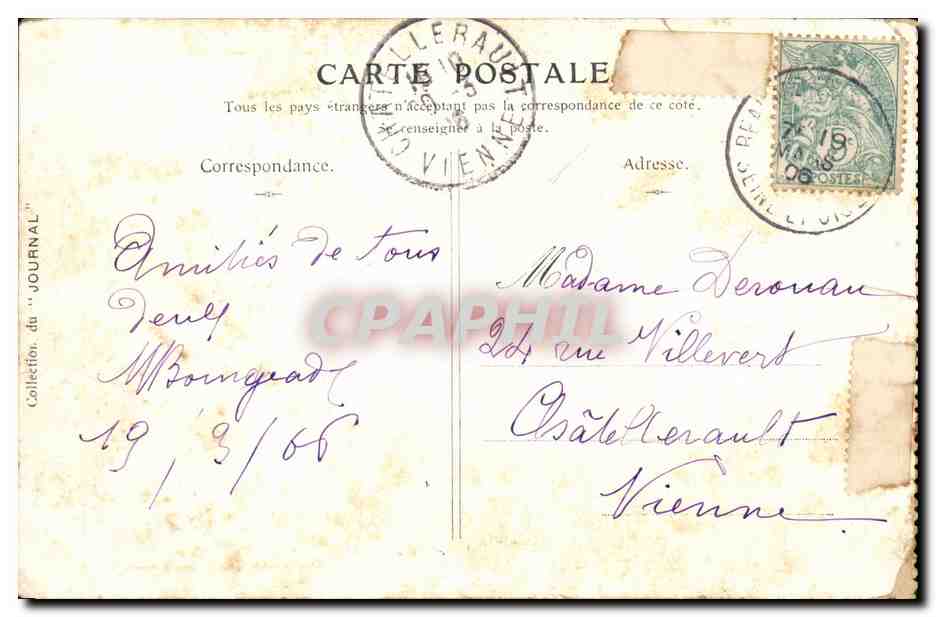 CARTE POSTALE
Tous les pays étrangers n'acceptant pas la correspondance de ce côté.
Se renseigner à la poste.
CHATELLERAULT
VIENNE
Correspondance.
Adresse.
SEINE ET OISE
19
MARS
06
5c
POSTES
Collection du "JOURNAL"
Amitiés de tous
deux
19/3/06
Madame Derouau
24 rue Villevert
Châtellerault
Vienne
CPAPHIL